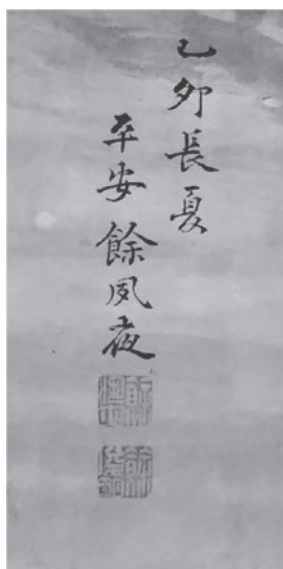 乙夘長夏
平安餘夙夜